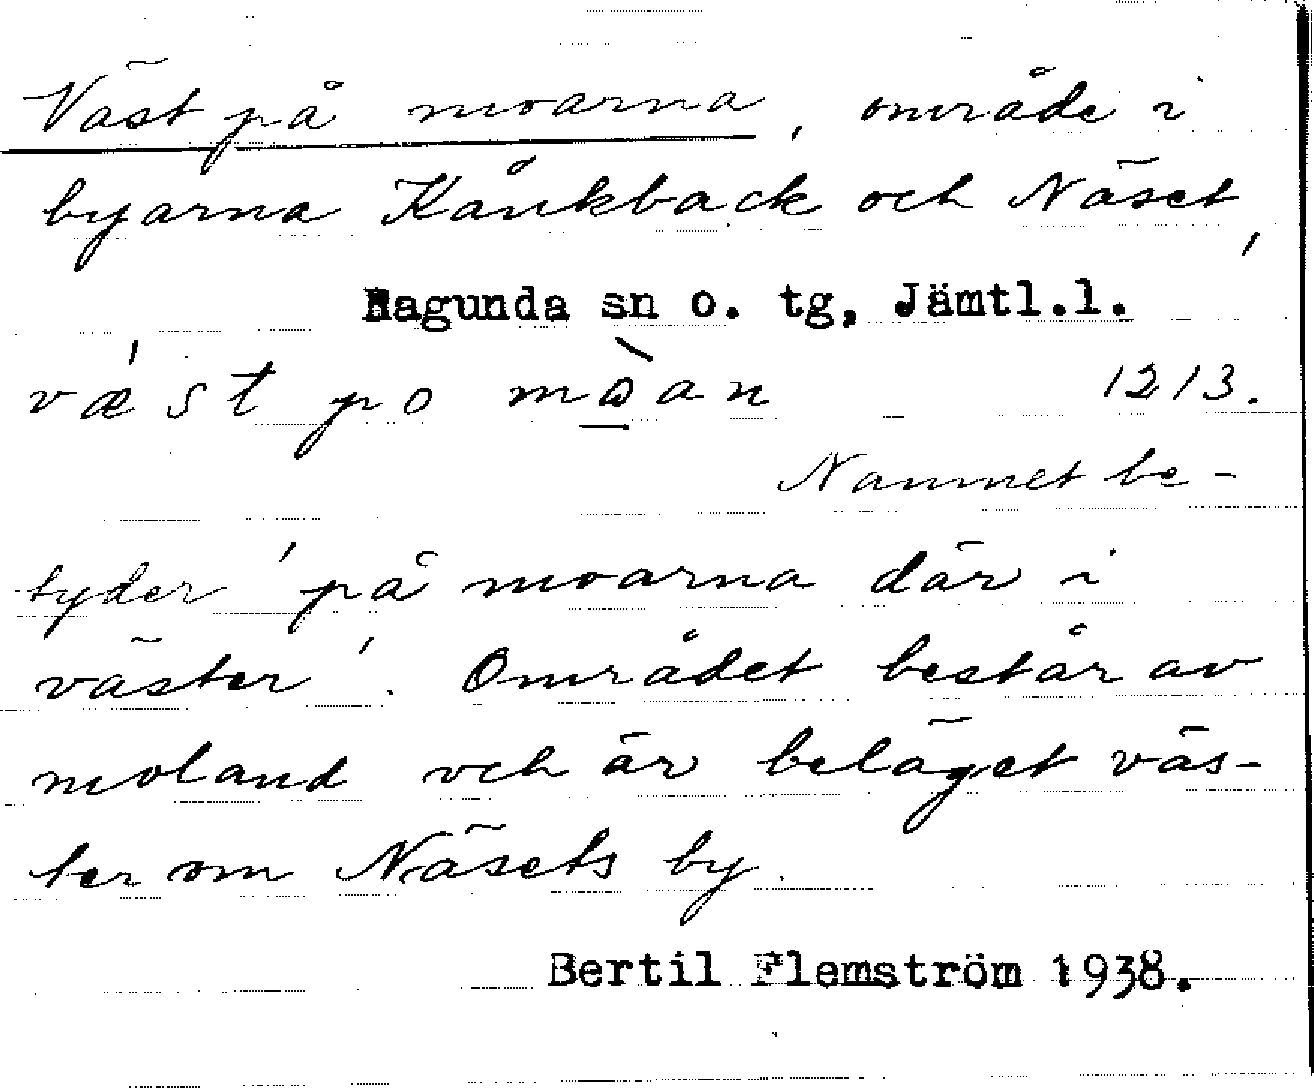 Väst på moarna, område i
byarna Kånkback och Näset,
Ragunda sn o. tg, Jämtl.l.
vǽst po mòan 1213.
Namnet be-
tyder 'på moarna där i
väster'. Området består av
moland och är beläget väs-
ter om Näsets by.
Bertil Flemström 1938.